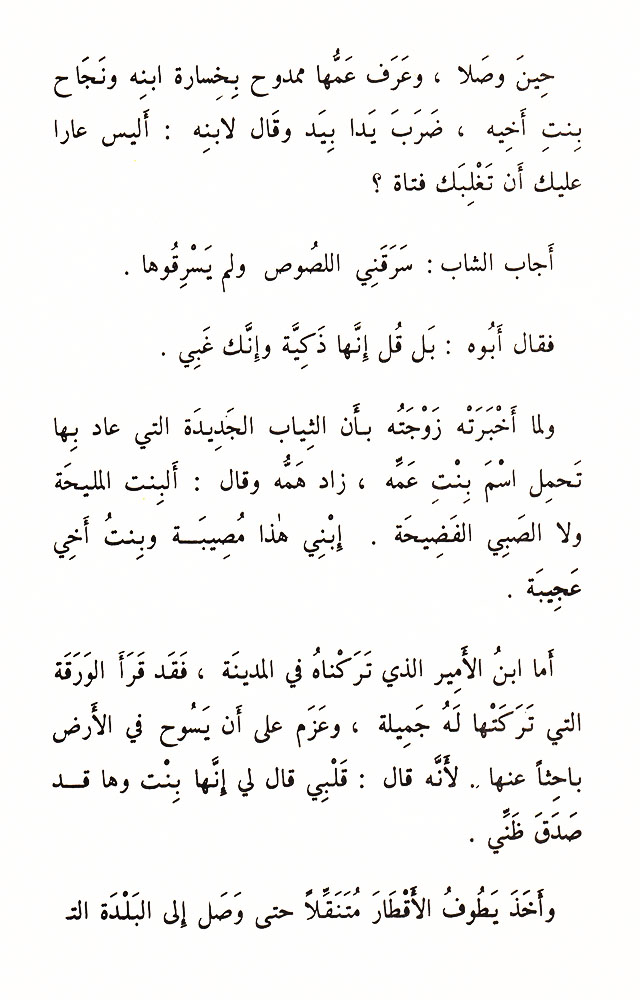 حِينَ وصَلا ، وعَرَف عَمُّها ممدوح بِخِسارة ابنِه ونَجَاح
بِنتِ أَخِيه ، ضَرَبَ يَدا بِيَد وقَال لابنِه : أَليس عارا
عليك أَن تَغْلِبَك فتاة ؟
أَجاب الشاب : سَرَقَنِي اللصُوص ولم يَسْرِقُوها .
فقال أَبُوه : بَل قُل إِنَّها ذَكِيَّة وإِنَّك غَبِي .
ولما أَخْبَرَتْه زَوْجَتُه بأَن الثِياب الجَدِيدَة التي عاد بِها
تَحمِل اسْمَ بِنْتِ عَمِّه ، زاد هَمُّه وقال : أَلبِنت المليحَة
ولا الصَبِي الفَضِيحَة . إِبْنِي هٰذا مُصِيبَـــة وبِنتُ أَخِي
عَجِيبَة .
أَما ابنُ الأَمِير الذي تَرَكْناهُ في المدينَة ، فَقَد قَرَأَ الوَرَقَة
التي تَرَكَتْها لَهُ جَمِيلة ، وعَزَم على أَن يَسُوح في الأَرض
باحِثاً عنها .. لأَنَّه قال : قَلْبِي قال لي إِنَّها بِنْت وها قـــد
صَدَقَ ظَنِّي .
وأَخَذَ يَطُوفُ الأَقْطَارَ مُتَنَقِّلاً حتى وَصَل إِلى البَلْدَة التـ